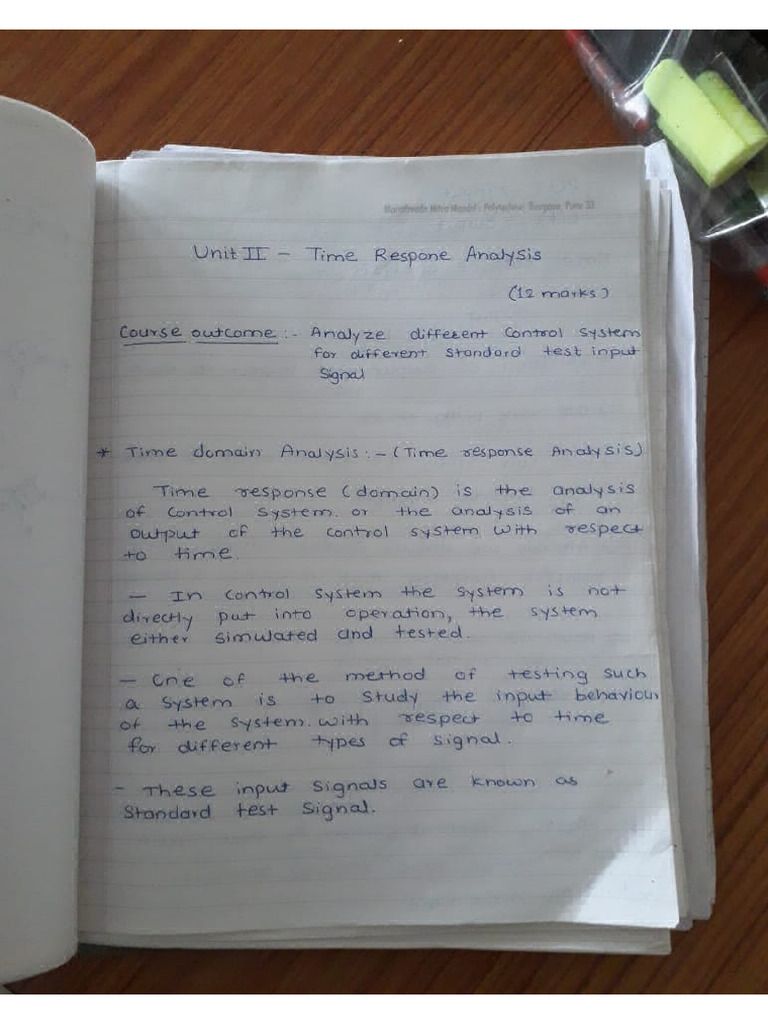 Marathwada Mitra Mandal's Polytechnic, Thergaon, Pune 33.
Unit II - Time Respone Analysis
(12 marks)
Course outcome :- Analyze different Control System
for different Standard test input
Signal
* Time domain Analysis :- (Time response Analysis)
Time response (domain) is the analysis
of Control System. or the analysis of an
output of the control system with respect
to time.
- In Control System the System is not
directly put into operation, the system
either simulated and tested.
- One of the method of testing such
a System is to Study the input behaviour
of the System. with respect to time
for different types of signal.
- These input Signals are known as
Standard test Signal.